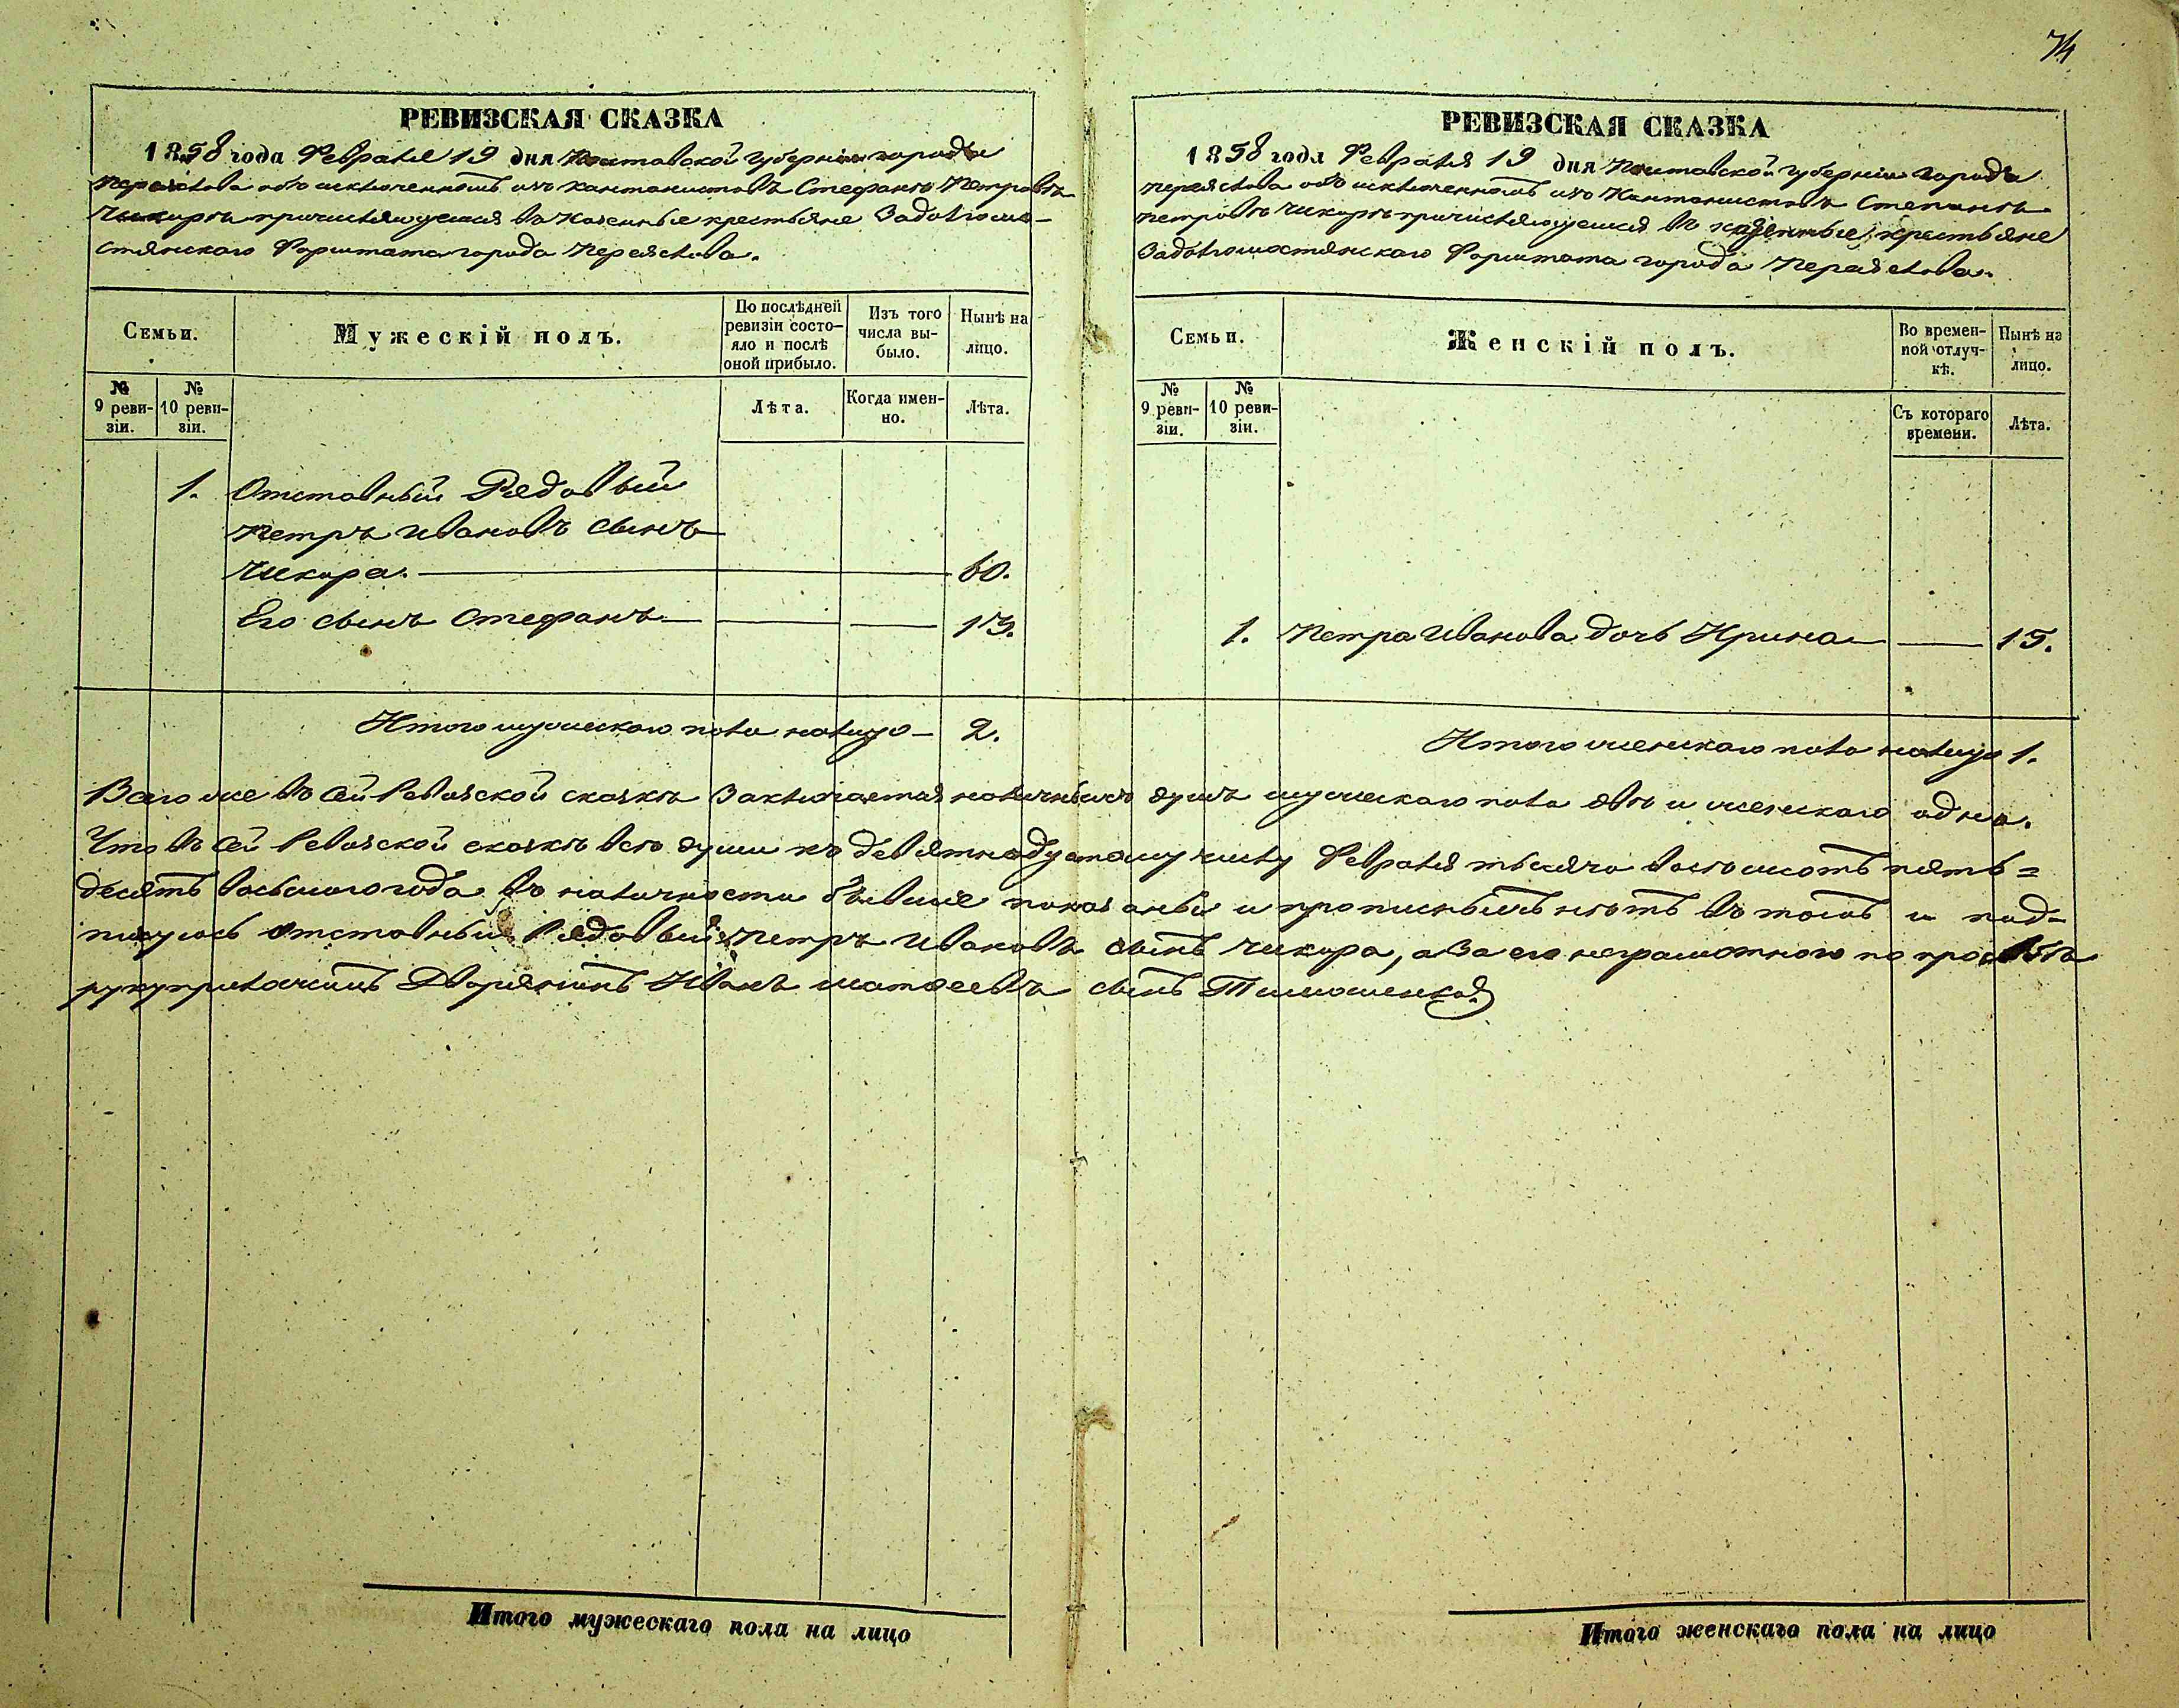 74
РЕВИЗСКАЯ СКАЗКА
1858 года Февраля 19 дня Полтавской губернiи города
Переяслова объ исключенномъ изъ кантонистовъ Стефанѣ Петровѣ
Чикирѣ причисляющемся въ казенные крестьяне Задолгомо-
стянскаго Форштата города Переяслова.
Семьи.
Мужескій полъ.
По послѣдней ревизіи состо-яло и послѣ оной прибыло.
Изъ того числа вы-было.
Нынѣ на лицо.
№ 9 реви-зіи.
№ 10 реви-зіи.
Лѣта.
Когда имен-но.
Лѣта.
1. Отставный Рядовый
Петръ Ивановъ сынъ
Чикира. 60.
Его сынъ Стефанъ 13.
Итого мужескаго пола налицо 2.
РЕВИЗСКАЯ СКАЗКА
1858 года Февраля 19 дня Полтавской губернiи города
Переяслова объ исключенномъ изъ Кантонистовъ Степанѣ
Петровѣ Чикирѣ причисляющемся въ казенные крестьяне
Задолгомостянскаго Форштата города Переяслова.
Семьи.
Женскій полъ.
Во времен-ной отлуч-кѣ.
Нынѣ на лицо.
№ 9 реви-зіи.
№ 10 реви-зіи.
Съ котораго времени.
Лѣта.
1. Петра Иванова дочь Ирина 15.
Итого женскаго пола налицо 1.
Всего же въ сей Ревизской сказкѣ заключается наличныхъ душъ мужескаго пола двѣ и женскаго одна.
Что въ сей Ревизской сказкѣ всѣ души къ девятнадцатому числу Февраля тысяча восемьсотъ пять=
десятъ восьмого года въ наличности бывшiе показаны и прописныхъ нѣтъ въ томъ и под-
писуюсь отставный Рядовый Петръ Ивановъ сынъ Чикира, а за его неграмотного по просьбѣ
руку приложилъ Дворянинъ Иванъ Матвеевъ сынъ Тимошенко
Итого мужескаго пола на лицо
Итого женскаго пола на лицо